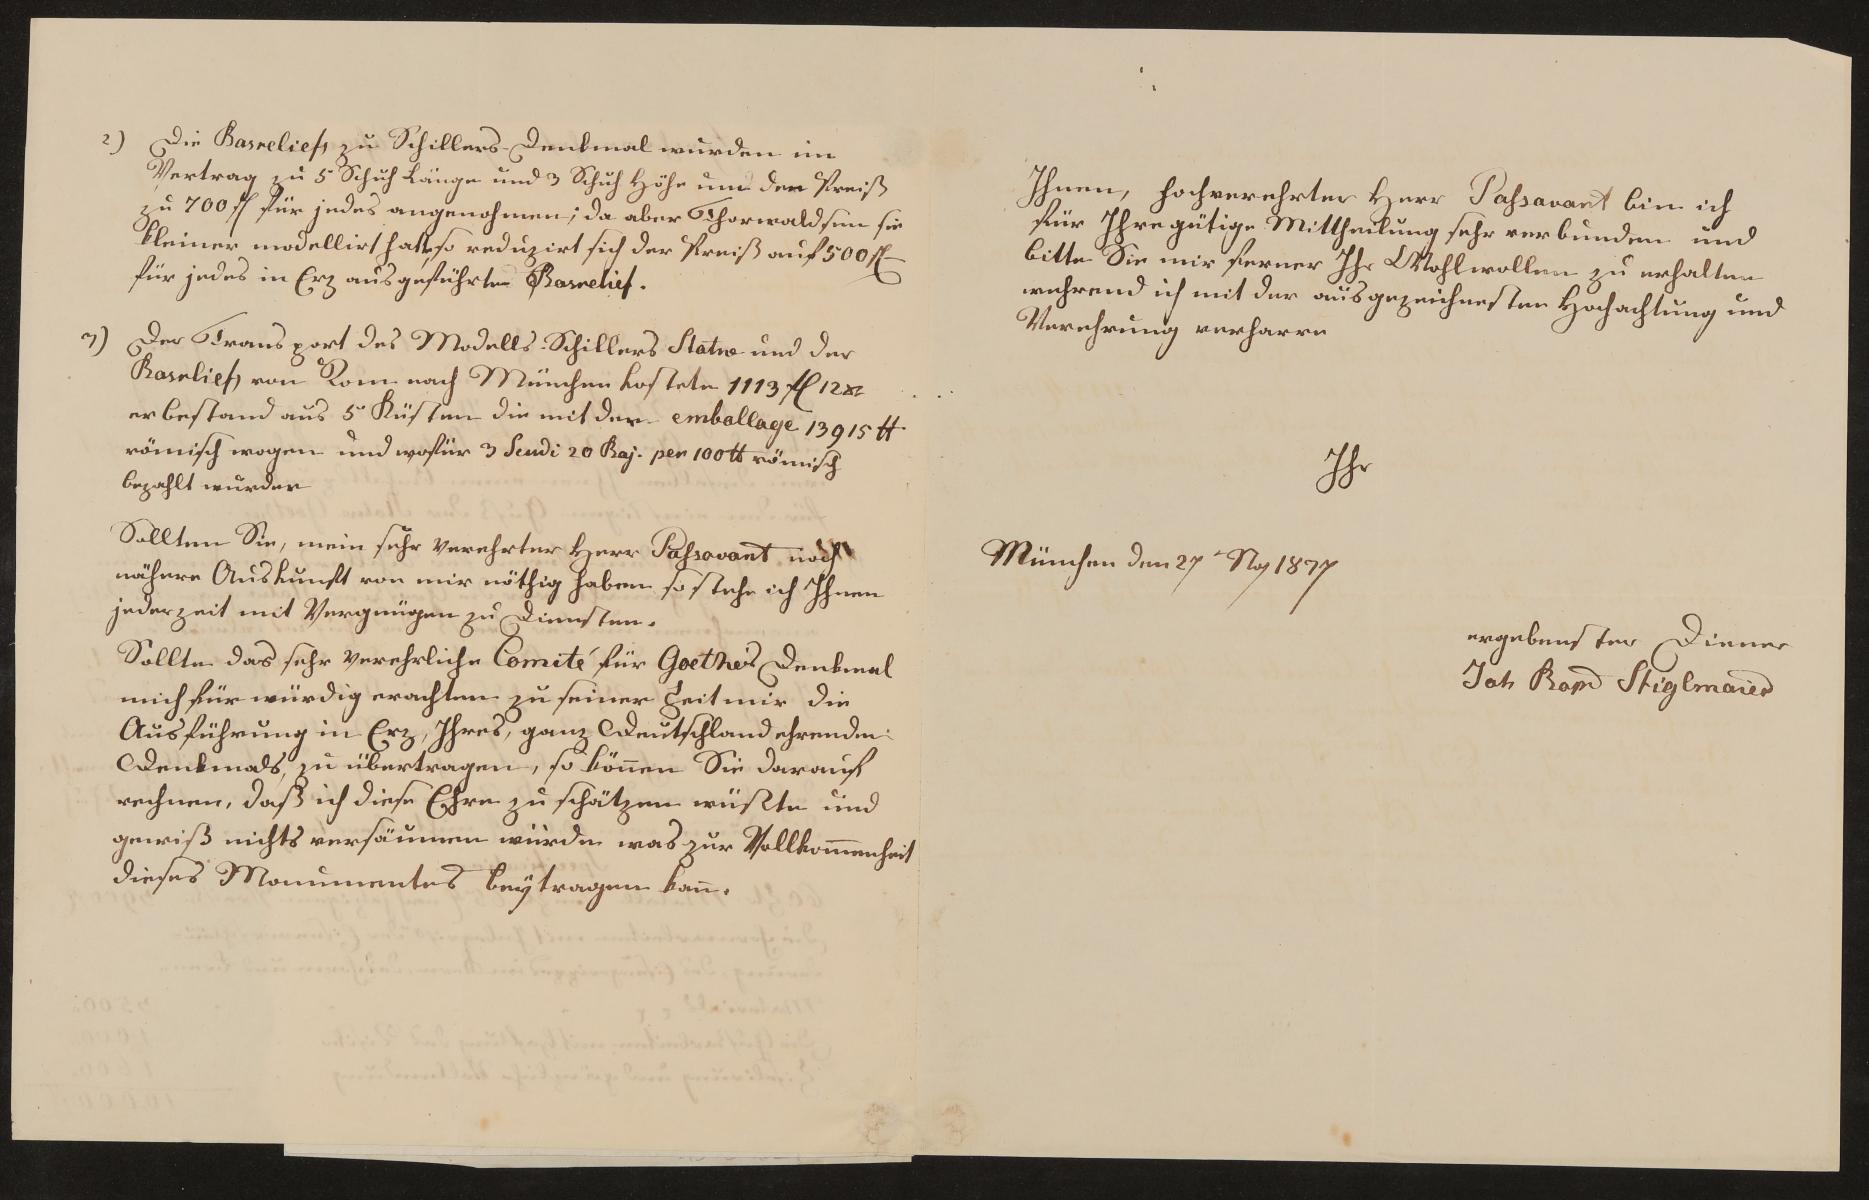 2) Die Basreliefs zu Schillers-Denkmal wurden im
Vertrag zu 5 Schuh Länge und 3 Schuh Höhe um den Preiß
zu 700 fl für jedes angenohmen; da aber Thorwaldsen sie
kleiner modellirt hatt, so reduzirt sich der Preiß auf 500 fl
für jedes in Erz ausgeführte Basrelief.
3) Der Transport des Modells-Schillers Statue und der
Basreliefs von Rom nach München kostete 1113 fl 12 xr
er bestand aus 5 Kisten die mit der emballage 13915 ℔
römisch wogen und wofür 3 Scudi 20 Baj. per 100 ℔ römisch
bezahlt wurden
Sollten Sie, mein sehr verehrter Herr Passavant noch
nähere Auskunft von mir nöthig haben so stehe ich Ihnen
jederzeit mit Vergnügen zu Diensten.
Sollte das sehr verehrliche Comité für Goethes Denkmal
mich für würdig erachten zu seiner Zeit mir die
Ausführung in Erz, Ihres, ganz Deutschland ehrenden
Denkmals, zu übertragen, so können Sie darauf
rechnen, daß ich diese Ehre zu schätzen wüßte und
gewiß nichts versäumen würde was zur Vollkommenheit
dieses Monumentes beytragen kann.
Ihnen, hochverehrter Herr Passavant bin ich
für Ihre gütige Mittheilung sehr verbunden und
bitte Sie mir ferner Ihr Wohlwollen zu erhalten
während ich mit der ausgezeichnesten Hochachtung und
Verehrung verharre
Ihr
München den 27 1837
ergebenster Diener
Joh Bapt Stiglmaier